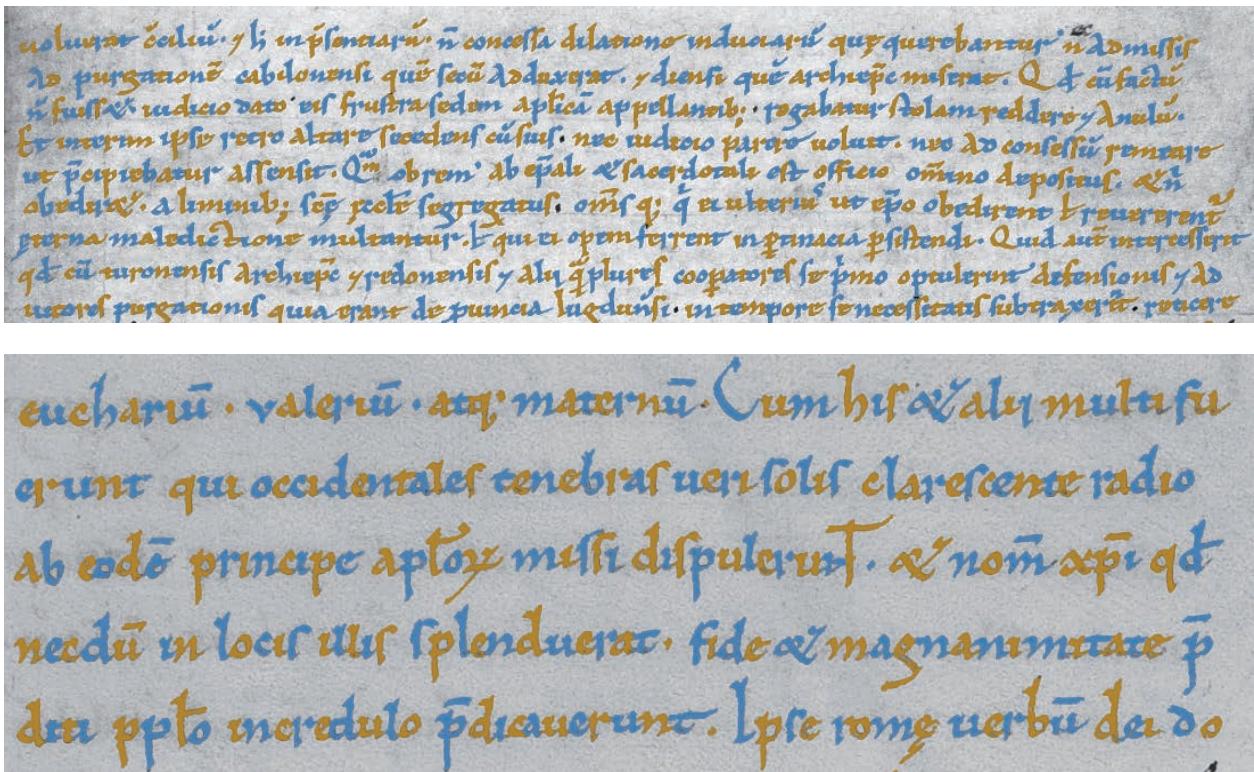 uoluerat c̄ciliū. ⁊ h̄ in p̄sentiarū. n̄ concessa dilatione induciarū quę querebantur n̄ admissis
Ad purgationē cabdonensi quē secū adduxerat. ⁊ diensi quē archiep̄c miserat. Qd̄ cū factū
n̄ fuiss&. iudicio dato eis frustra sedem apl̄icā appellantib; rogabatur stolam reddere ⁊ anulū.
Et interim ipse retro altare secedens cū suis. nec iudicio parere uoluit. nec ad consessū remeare
ut p̄cipiebatur assensit. Quā obrem ab ep̄ali & sacerdotali est officio om̄ino depositus. & n̄
obedir&. a liminib; scę̄ ęccl̄ę segregatus. om̄s q; q̄ ei ulteriū ut ep̄o obedirent ł reuererent̄
ęterna maledictione multantur. ł qui ei opem ferrent in ꝑtinacia ꝑsistendi. Quid aut̄ intercesserit
qd̄ cū turonensis archiep̄c ⁊ redonensis ⁊ alij quā plures cooꝑatores se p̄mo optulerint defensionis ⁊ ad
iutores purgationis quia erant de ꝓuincia lugdun̄si. in tempore se necessitatis subtraxerīt. reticere
euchariū . valeriū . atq; maternū. Cum his & alij multi fu
erunt qui occidentales tenebras ueri solis clarescente radio
ab eodē principe apl̄oꝝ missi dispulerunt. & nom̄ xp̄i qd̄
necdū in locis illis splenduerat. fide & magnanimitate p̄
diti pplo incredulo p̄dicauerunt. Ipse romę uerbū dei do